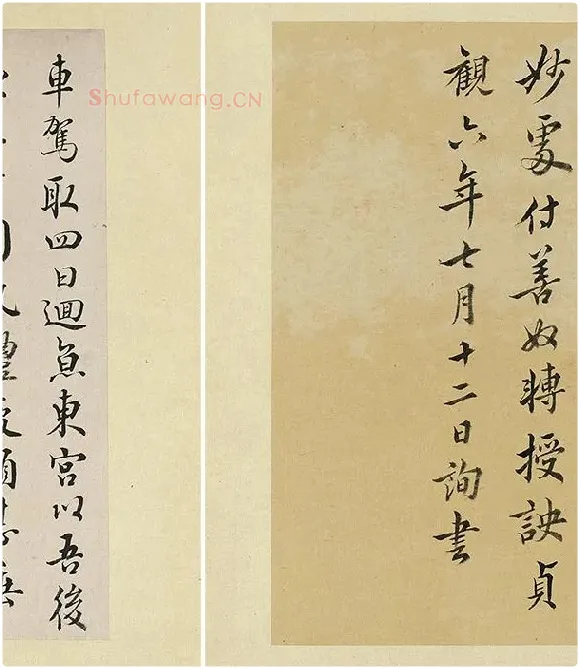 妙處付善奴轉授訣貞
觀六年七月十二日詢書
車駕取四日迴兼東宮以吾後
Shufawang.CN